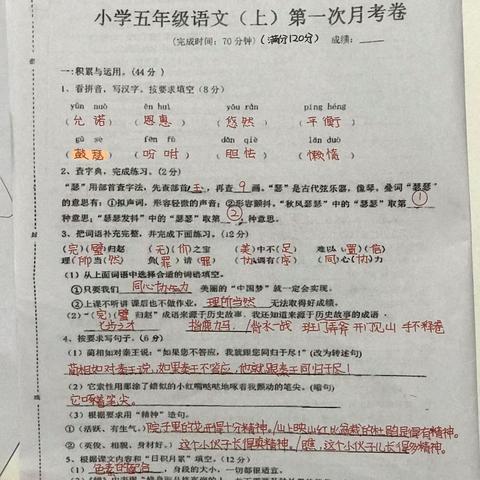 小学五年级语文（上）第一次月考卷
(完成时间：70分钟)（满分120分） 成绩：
一:积累与运用。(44分)
1、看拼音，写汉字。按要求填空（8分）
yǔn nuò ēn huì yōu rán píng héng
（允 诺）（恩 惠）（悠 然）（平 衡）
gǔ sè fēn fù dǎn qiè lǎn duò
（鼓 瑟）（吩 咐）（胆 怯）（懒 惰）
2、查字典，完成练习。(2分)
“瑟”用部首查字法，先查部首王，再查9画。“瑟”是古代弦乐器，像琴。叠词“瑟瑟”
的意思有：①拟声词，形容轻微的声音；②形容颤抖。“秋风瑟瑟”中的“瑟瑟”取第①
种意思；“瑟瑟发抖”中的“瑟瑟”取第②种意思。
3、把词语补充完整，并完成下面练习。(12分)
（完）（璧）归赵 （无）（价）之宝 （美）中不（足） 难以（置）（信）
理（所）当（然） 负（罪）请（罪） （协）调有（序） （同）心（协）力
（1）从上面词语中选择合适的词语填空。
①只要我们 同心协力 美丽的“中国梦”就一定会实现。
②上课不听讲 课后也不做作业，理所当然 无法取得好成绩。
（2）“（完）（璧）归赵”成语来源于历史故事，我还知道来源于历史故事的成语
指鹿为马 背水一战 班门弄斧 开门见山 手不释卷
4、按要求写句子。(6分)
（1）蔺相如对秦王说：“如果您不答应，我就跟您同归于尽！”(改为转述句)
蔺相如对秦王说，如果秦王不答应，他就跟秦王同归于尽！
（2）它索性用那涂了蜡似的小红嘴哒哒地啄着我颤动的笔尖。(缩句)
它啄着笔尖。
（3）根据要求用“精神”造句。
①（活跃、有生气。）院子里的花开得十分精神。/山上映山红比盆栽的杜鹃显得有精神。
②（英俊、相貌、身材好。）这个小伙子长得真精神。/瞧，这个小伙子儿长得多精神。
5、根据课文内容和“日积月累”填空。(12分)
（1）色素的配合，身段的大小，一切都很适宜。